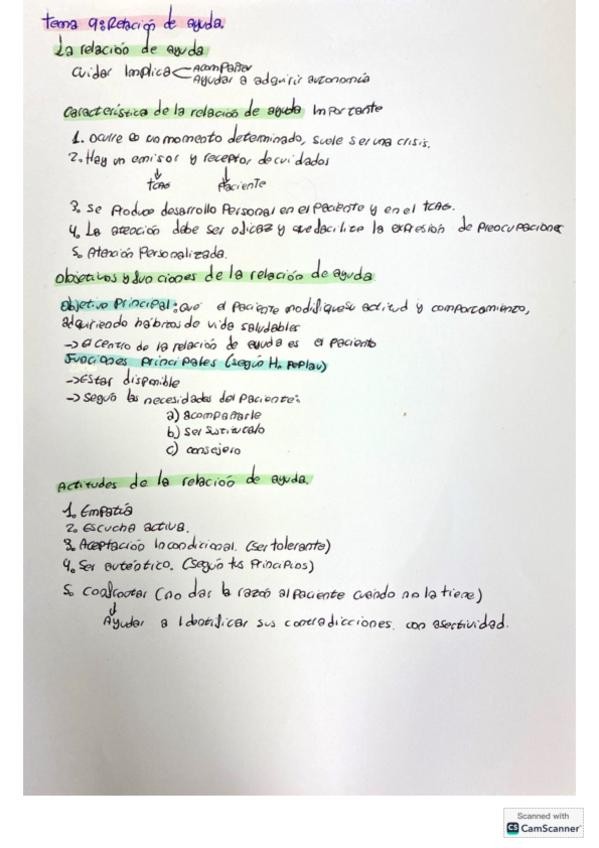 Tema 9: Relación de ayuda.
La relación de ayuda
Cuidar Implica < Acompañar
Ayudar a adquirir autonomía
Característica de la relación de ayuda Importante
1. Ocurre en un momento determinado, suele ser una crisis.
2. Hay un emisor y receptor de cuidados
↓ ↓
TCAE Paciente
3. Se Produce desarrollo Personal en el Paciente y en el TCAE.
4. La atención debe ser eficaz y que facilite la expresión de Preocupaciones
5. Atención Personalizada.
Objetivos y funciones de la relación de ayuda
Objetivo Principal: que el Paciente modifique su actitud y comportamiento,
adquiriendo hábitos de vida saludables
→ El centro de la relación de ayuda es el Paciente
Funciones Principales (según H. Peplau)
→ Estar disponible
→ Según las necesidades del Paciente:
a) acompañarle
b) Ser sustituto
c) consejero
Actitudes de la relación de ayuda.
1. Empatía
2. Escucha activa.
3. Aceptación Incondicional. (Ser tolerante)
4. Ser auténtico. (Según tus Principios)
5. Confrontar (no dar la razón al Paciente cuando no la tiene)
↓
Ayudar a Identificar sus contradicciones. con asertividad.
Scanned with
CS CamScanner